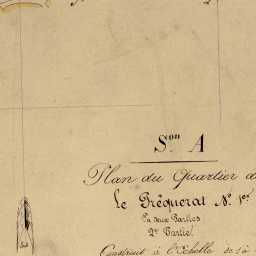 Son A
Plan du Quartier d
Le Préquerat No 1er
En deux Parties
2e Partie
Construit à l'Echelle de 1 à
Sud